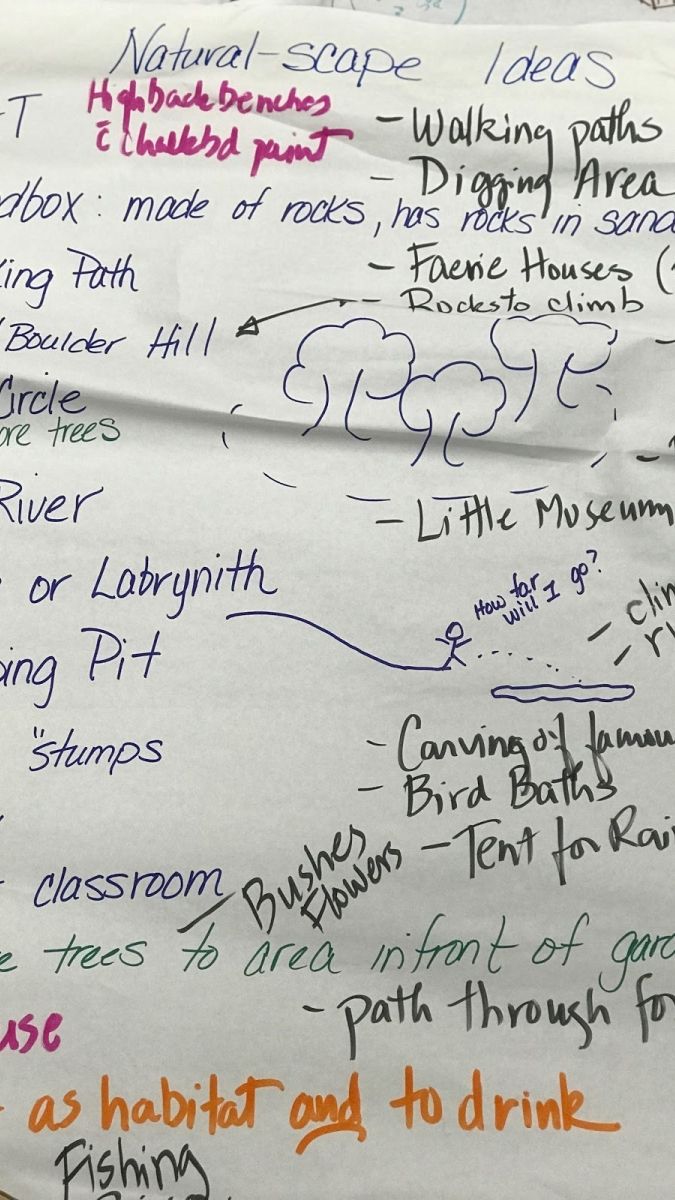 Natural-scape Ideas
-T
Highback benches
c̄ chalkbd paint
- Walking paths
- Digging Area
dbox: made of rocks, has rocks in sand
king Path
- Faerie Houses (
-- Rocks to climb
Boulder Hill
Circle
ore trees
River
- Little Museum
or Labrynith
How far
will I go?
- clim
ing Pit
"stumps
- Carving of famou
- Bird Baths
- Tent for Rai
classroom
- Bushes
Flowers
e trees to area infront of gard
- path through fo
use
- as habitat and to drink
Fishing